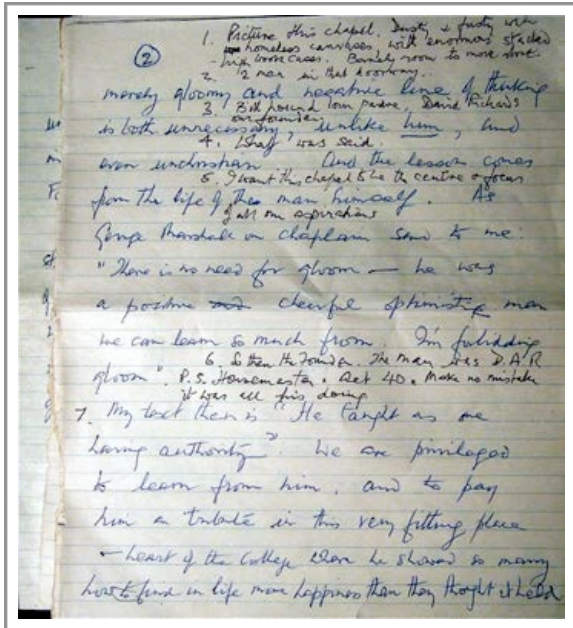 ②
1. Picture this chapel. Dusty & fusty with
homeless canvases, with enormous stacked
high bookcases. Barely room to move about.
2. 2 men in that doorway.
merely gloomy and negative line of thinking
3. Both hound loun David Richards
our founder
is both unnecessary, unlike him, and
4. What was said.
even unchristian. And the lesson comes
5. I want this chapel to be the centre & focus
from the life of the man himself. As
of all our aspirations
George Marshall our chaplain said to me:
"There is no need for gloom — he was
a positive cheerful optimistic man
we can learn so much from. I'm forbidding
6. So then the Founder. The man was D.A.R
gloom". P.S. Housemaster. Act 40. Make no mistake
it was all his doing
7. My text then is "He taught as one
having authority" We are privileged
to learn from him, and to pay
him a tribute in this very fitting place
- heart of the College where he showed so many
how to find in life more happiness than they thought it held